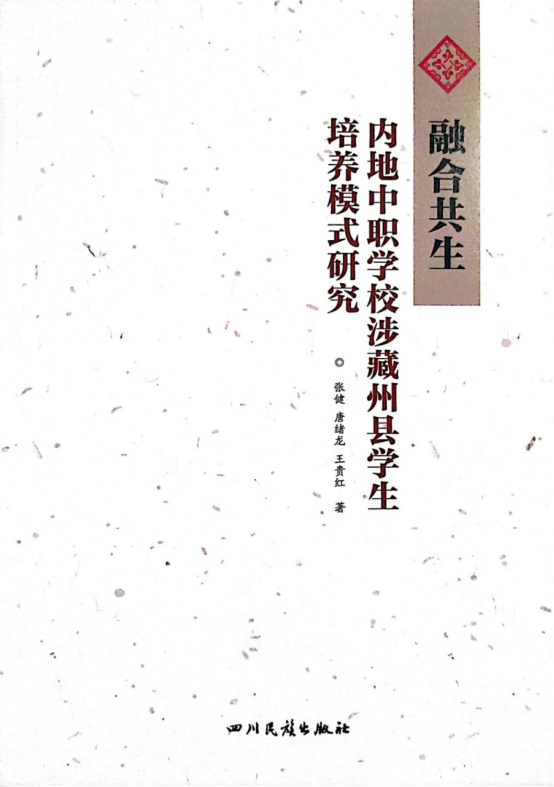 融合共生
内地中职学校涉藏州县学生
培养模式研究
◎ 张健 唐绪龙 王贵红 著
四川民族出版社